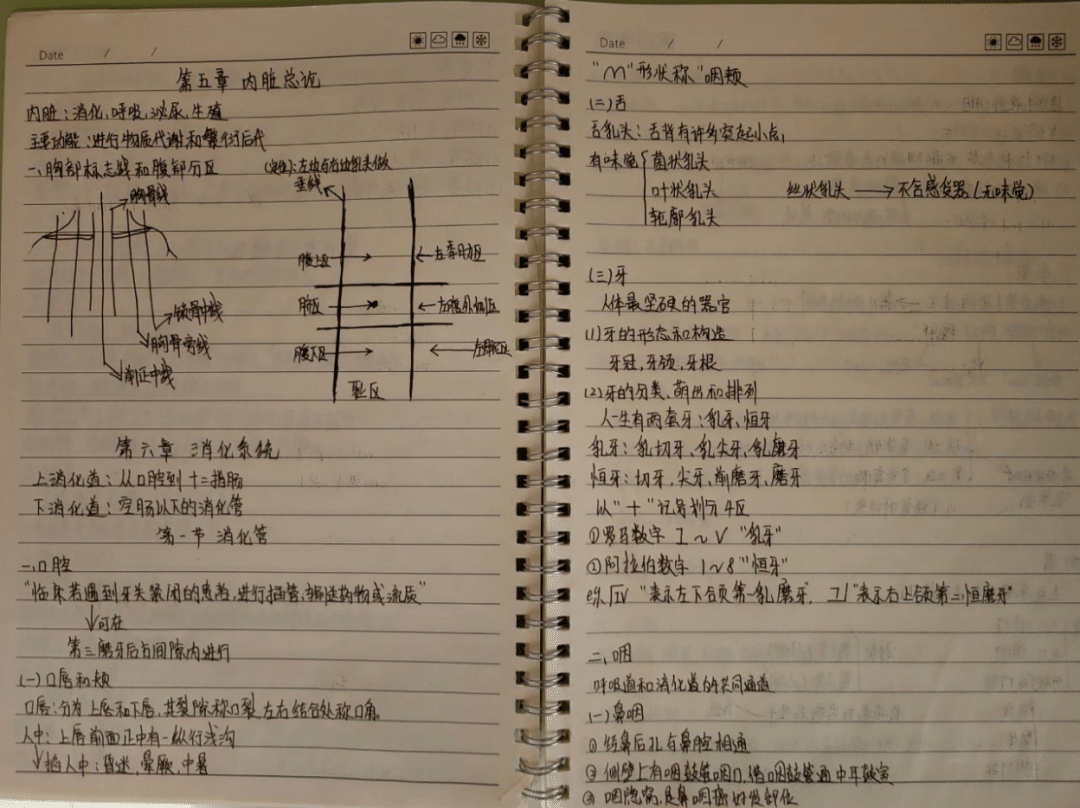 Date / /
第五章 内脏总论
内脏:消化,呼吸,泌尿,生殖
主要功能:进行物质代谢和繁衍后代
一、胸部标志线和腹部分区
垂线
胸骨线
腹上区
左季肋区
脐区
左腹外侧区
锁骨中线
胸骨旁线
腹下区
左髂区
前正中线
耻区
第六章 消化系统
上消化道:从口腔到十二指肠
下消化道:空肠以下的消化管
第一节 消化管
一、口腔
"临床若遇到牙关紧闭的患者,进行插管,输送药物或流质"
↓可在
第三磨牙后方间隙内进行
(一)口唇和颊
口唇:分为上唇和下唇,其裂隙称口裂,左右结合处称口角。
人中:上唇前面正中有一纵行浅沟
↓掐人中:昏迷,晕厥,中暑
Date / /
"M"形状称"咽颊
(二)舌
舌乳头:舌背有许多突起小点,
有味觉 菌状乳头
叶状乳头 丝状乳头→不含感受器(无味觉)
轮廓乳头
(三)牙
人体最坚硬的器官
(1)牙的形态和构造
牙冠,牙颈,牙根
(2)牙的分类、萌出和排列
人一生有两套牙:乳牙,恒牙
乳牙:乳切牙,乳尖牙,乳磨牙
恒牙:切牙,尖牙,前磨牙,磨牙
以"十"记号划分4区
①罗马数字 I~V "乳牙"
②阿拉伯数字 1~8 "恒牙"
"表示左下颌第一乳磨牙, "表示右上颌第二恒磨牙"
二、咽
呼吸道和消化道的共同通道
(一)鼻咽
①经鼻后孔与鼻腔相通
②侧壁上有咽鼓管咽口,借咽鼓管通中耳鼓室
③咽隐窝,是鼻咽癌好发部位